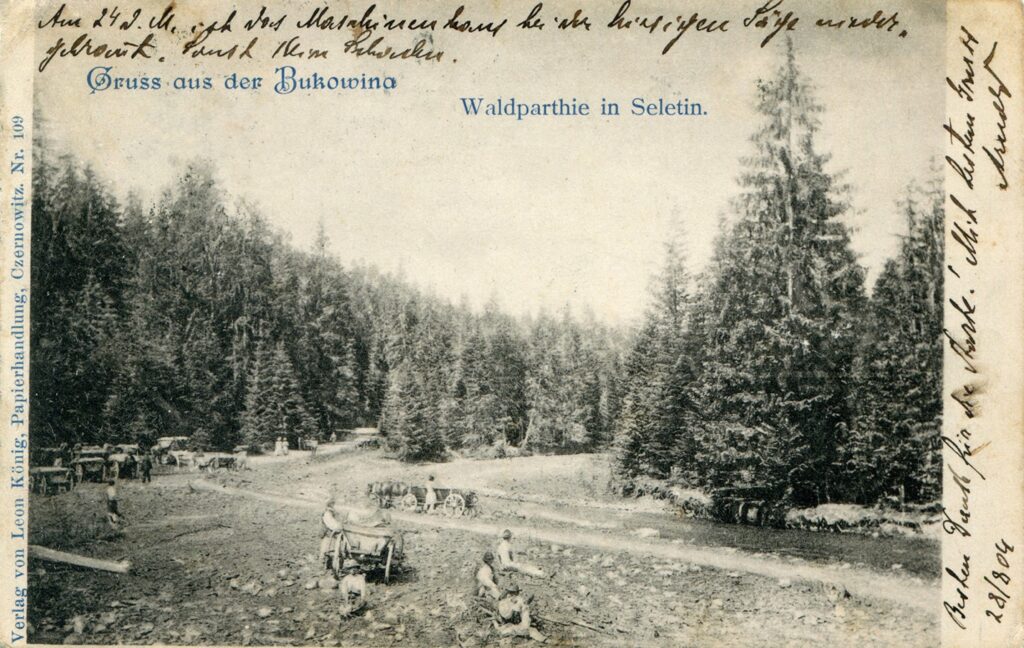 Am 24 d. M. ist das Maschinenhaus bei der hiesigen Säge nieder-
gebrannt. Sonst kein Schaden.
Gruss aus der Bukowina
Waldparthie in Seletin.
Verlag von Leon König, Papierhandlung, Czernowitz. Nr. 109
Besten Dank für die Karte! Mit besten Gruss
28/8 04